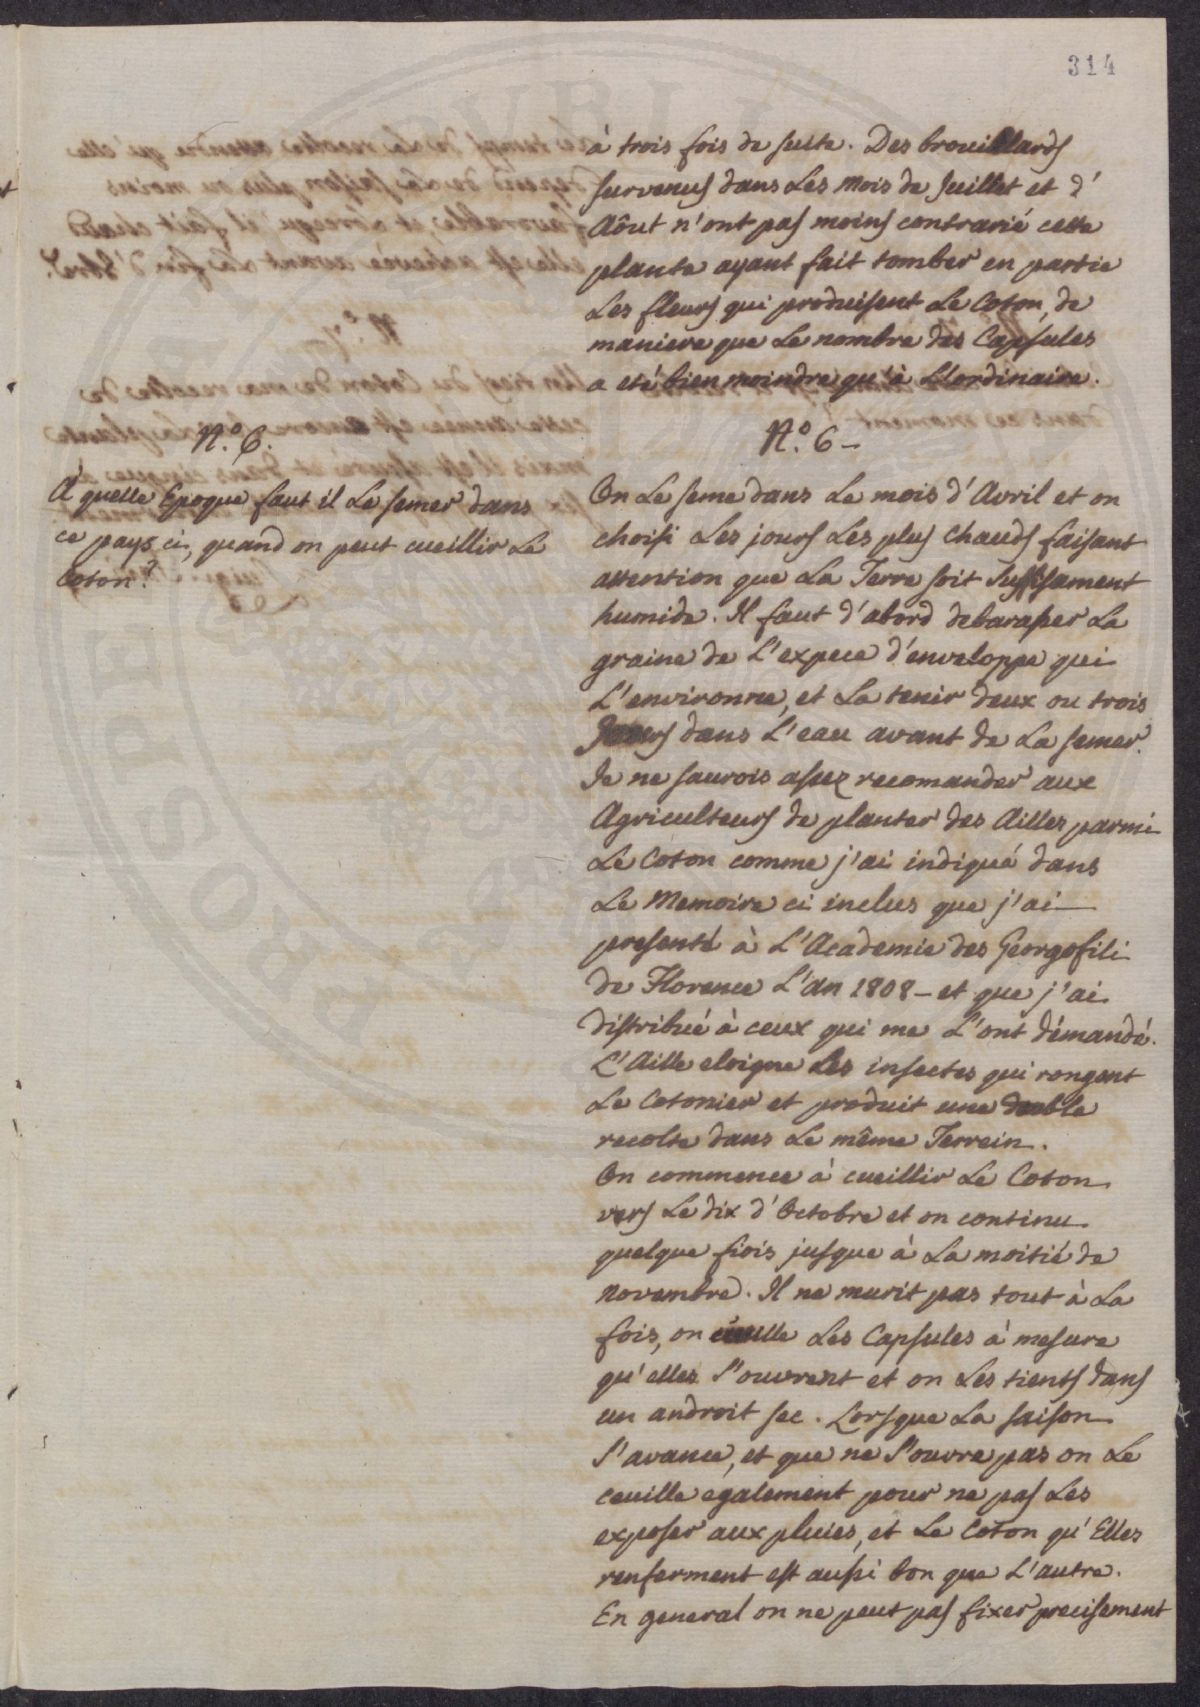 314
à trois fois de suite. Des brouillards
survenus dans Les mois de Juillet et d'
Aôut n'ont pas moins contrarié cette
plante ayant fait tomber en partie
Les fleurs qui produisent Le Coton, de
maniere que Le nombre des Capsules
a eté bien moindre qu'à L'ordinaire.
N.º 6.
A quelle Epoque faut il Le semer dans
ce pays ci, quand on peut cueillir Le
Coton?
N.º 6 -
On Le seme dans Le mois d'Avril et on
choisi Les jours Les plus chauds faisant
attention que La Terre soit suffisament
humide. Il faut d'abord debarasser La
graine de L'expece d'enveloppe qui
L'environne, et La tenir deux ou trois
Jours dans L'eau avant de La semer.
Je ne saurois assez recomander aux
Agriculteurs de planter des Ailles parmi
Le Coton comme j'ai indiqué dans
Le Memoire ci inclus que j'ai
presenté à L'Academie des Georgofili
de Florence L'An 1808 - et que j'ai
distribué à ceux qui me L'ont démandé.
L'Aille eloigne Les insectes qui rongent
Le Cotonier et produit une double
recolte dans Le même Terrein.
On commence à cueillir Le Coton
vers Le dix d'Octobre et on continu
quelque fiois jusque à La moitié de
Novembre. Il ne murit pas tout à La
fois, on cueille Les Capsules à mesure
qu'elles s'ouvrent et on Les tients dans
un androit sec. Lorsque La saison
s'avance, et que ne s'ouvre pas on Le
ceuille egalement pour ne pas Les
exposer aux pluies, et Le Coton qu'Elles
renferment est aussi bon que L'autre.
En general on ne peut pas fixer precisement